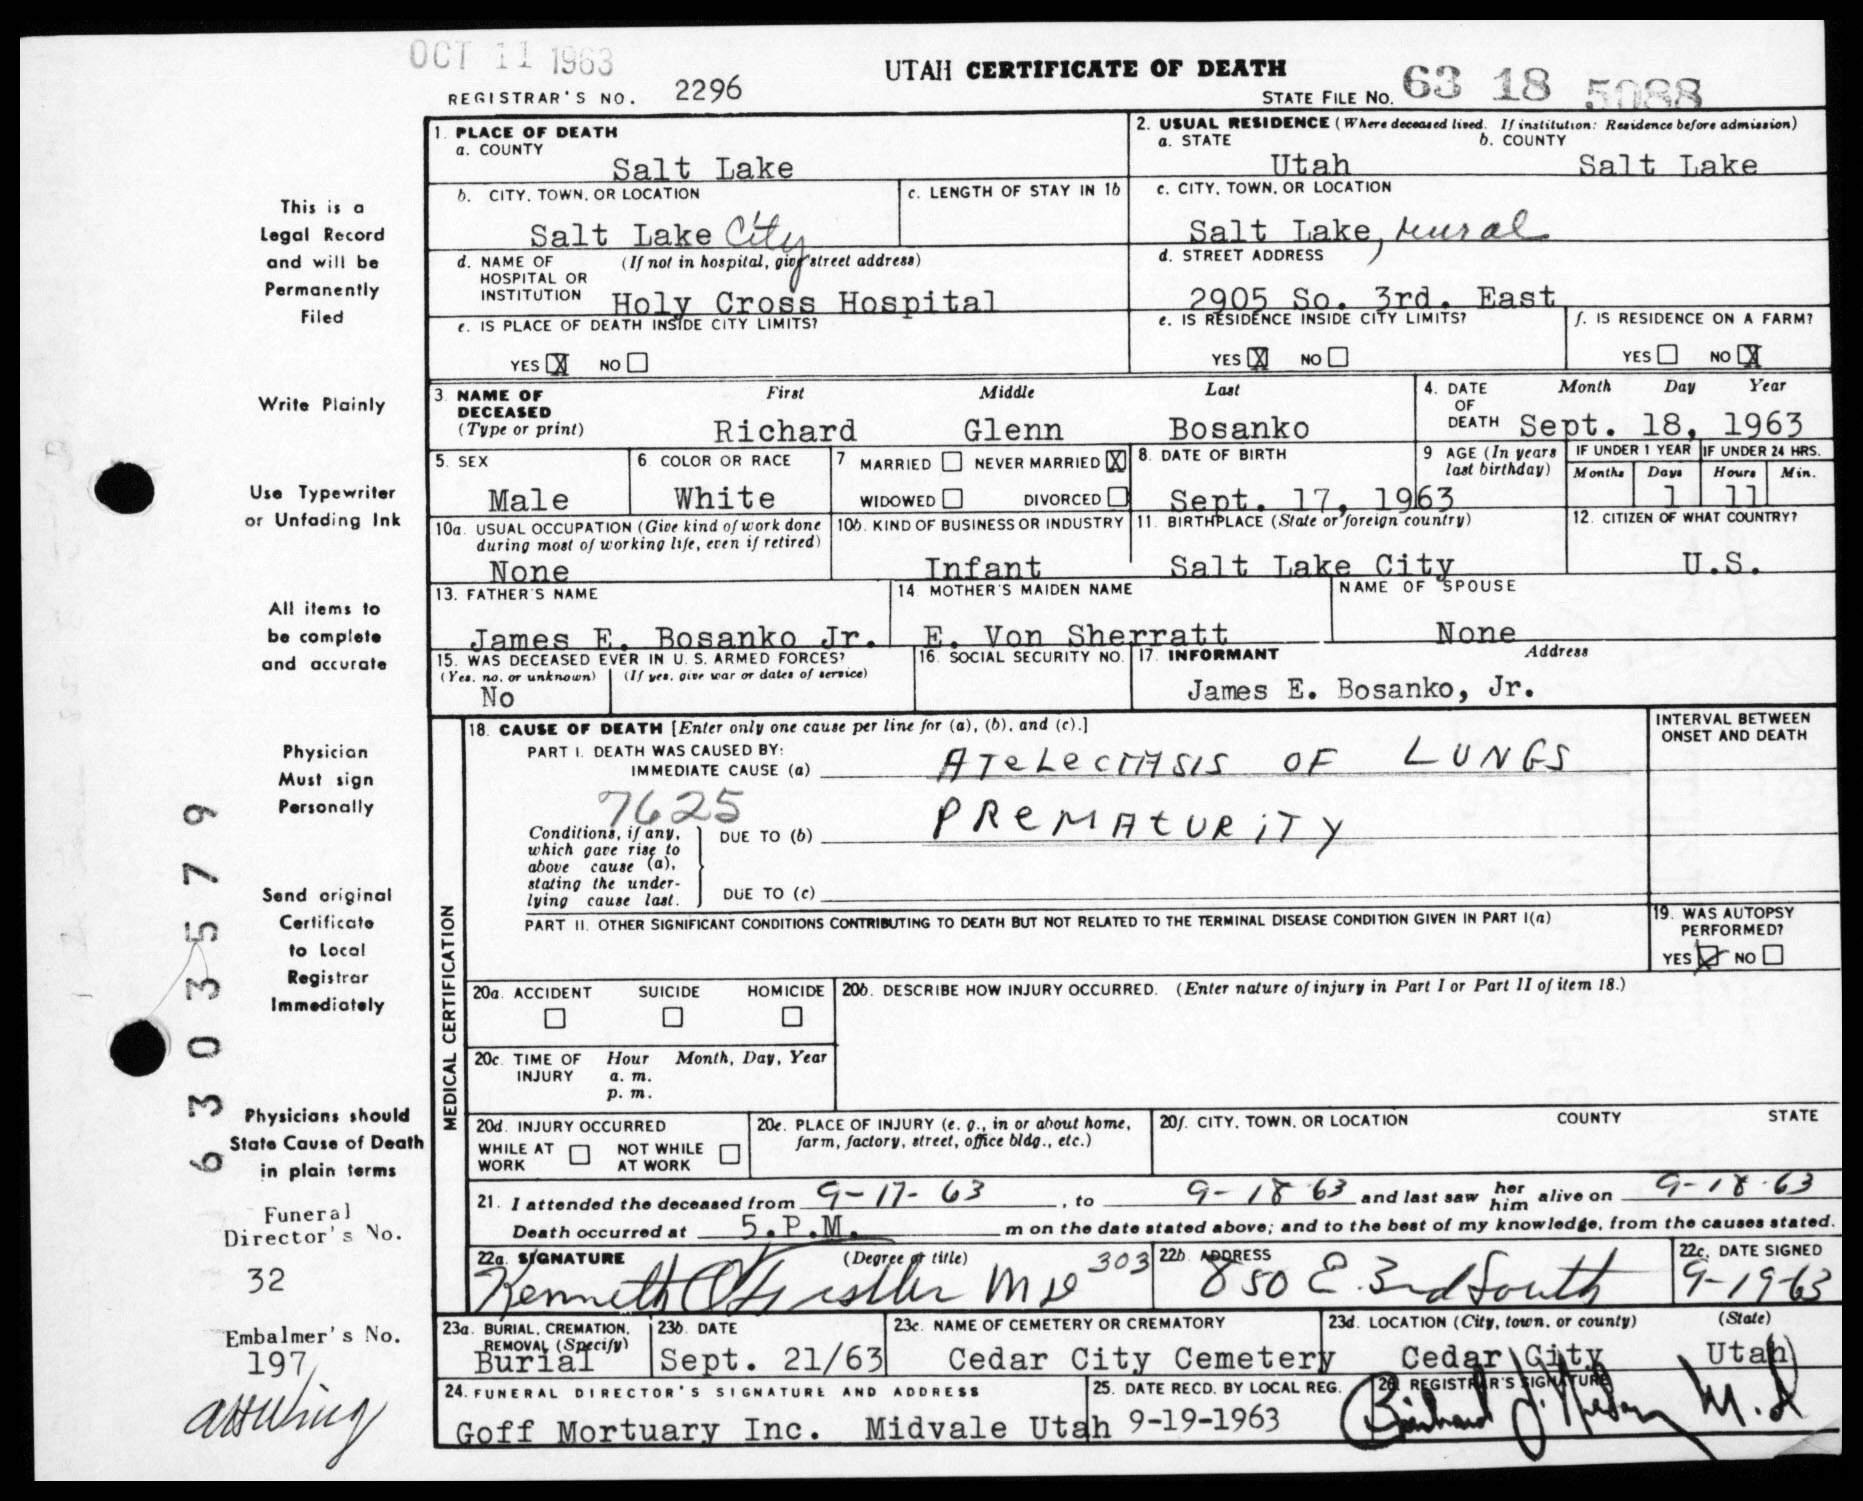 OCT 11 1963
UTAH CERTIFICATE OF DEATH
REGISTRAR'S NO. 2296
STATE FILE NO. 63 18 5088
1. PLACE OF DEATH
a. COUNTY
Salt Lake
2. USUAL RESIDENCE (Where deceased lived. If institution: Residence before admission)
a. STATE b. COUNTY
Utah Salt Lake
b. CITY, TOWN, OR LOCATION
Salt Lake City
c. LENGTH OF STAY IN 1b
c. CITY, TOWN, OR LOCATION
Salt Lake, rural
d. NAME OF HOSPITAL OR INSTITUTION (If not in hospital, give street address)
Holy Cross Hospital
d. STREET ADDRESS
2905 So. 3rd. East
e. IS PLACE OF DEATH INSIDE CITY LIMITS?
YES X NO
e. IS RESIDENCE INSIDE CITY LIMITS?
YES X NO
f. IS RESIDENCE ON A FARM?
YES NO X
3. NAME OF DECEASED (Type or print)
First Middle Last
Richard Glenn Bosanko
4. DATE OF DEATH
Month Day Year
Sept. 18, 1963
5. SEX
Male
6. COLOR OR RACE
White
7 MARRIED NEVER MARRIED X
WIDOWED DIVORCED
8. DATE OF BIRTH
Sept. 17, 1963
9 AGE (In years last birthday)
IF UNDER 1 YEAR
Months Days
1
IF UNDER 24 HRS.
Hours Min.
11
10a. USUAL OCCUPATION (Give kind of work done during most of working life, even if retired)
None
10b. KIND OF BUSINESS OR INDUSTRY
Infant
11. BIRTHPLACE (State or foreign country)
Salt Lake City
12. CITIZEN OF WHAT COUNTRY?
U.S.
13. FATHER'S NAME
James E. Bosanko Jr.
14. MOTHER'S MAIDEN NAME
E. Von Sherratt
NAME OF SPOUSE
None
15. WAS DECEASED EVER IN U. S. ARMED FORCES?
(Yes, no, or unknown) (If yes, give war or dates of service)
No
16. SOCIAL SECURITY NO.
17. INFORMANT Address
James E. Bosanko, Jr.
MEDICAL CERTIFICATION
18. CAUSE OF DEATH [Enter only one cause per line for (a), (b), and (c).]
PART I. DEATH WAS CAUSED BY:
IMMEDIATE CAUSE (a) ATELECTASIS OF LUNGS
INTERVAL BETWEEN ONSET AND DEATH
7625
Conditions, if any, which gave rise to above cause (a), stating the underlying cause last.
DUE TO (b) PREMATURITY
DUE TO (c)
PART II. OTHER SIGNIFICANT CONDITIONS CONTRIBUTING TO DEATH BUT NOT RELATED TO THE TERMINAL DISEASE CONDITION GIVEN IN PART I(a)
19. WAS AUTOPSY PERFORMED?
YES ✓ NO
20a. ACCIDENT SUICIDE HOMICIDE
20b. DESCRIBE HOW INJURY OCCURRED. (Enter nature of injury in Part I or Part II of item 18.)
20c. TIME OF INJURY Hour Month, Day, Year
a. m.
p. m.
20d. INJURY OCCURRED
WHILE AT WORK NOT WHILE AT WORK
20e. PLACE OF INJURY (e. g., in or about home, farm, factory, street, office bldg., etc.)
20f. CITY, TOWN, OR LOCATION COUNTY STATE
21. I attended the deceased from 9-17-63, to 9-18-63 and last saw her him alive on 9-18-63
Death occurred at 5.P.M. m on the date stated above; and to the best of my knowledge, from the causes stated.
22a. SIGNATURE (Degree or title)
Kenneth MD 303
22b. ADDRESS
850 E. 3rd South
22c. DATE SIGNED
9-19-63
23a. BURIAL, CREMATION, REMOVAL (Specify)
Burial
23b. DATE
Sept. 21/63
23c. NAME OF CEMETERY OR CREMATORY
Cedar City Cemetery
23d. LOCATION (City, town, or county) (State)
Cedar City Utah
24. FUNERAL DIRECTOR'S SIGNATURE AND ADDRESS
Goff Mortuary Inc. Midvale Utah
25. DATE RECD. BY LOCAL REG.
9-19-1963
26. REGISTRAR'S SIGNATURE
M.D.
This is a
Legal Record
and will be
Permanently
Filed
Write Plainly
Use Typewriter
or Unfading Ink
All items to
be complete
and accurate
Physician
Must sign
Personally
Send original
Certificate
to Local
Registrar
Immediately
Physicians should
State Cause of Death
in plain terms
Funeral
Director's No.
32
Embalmer's No.
197
6303579